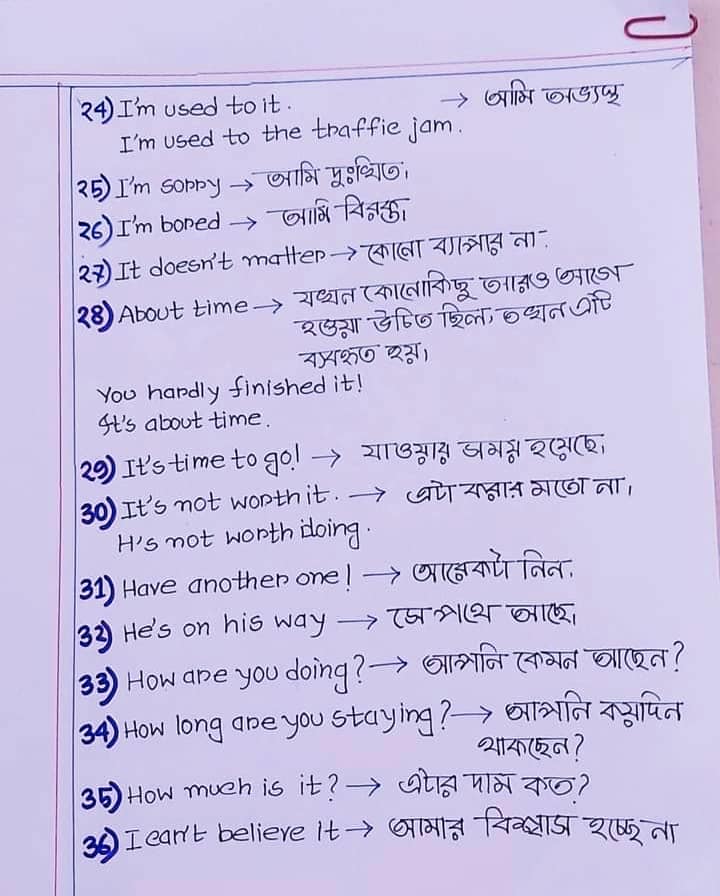 24) I'm used to it. → আমি অভ্যস্থ
I'm used to the traffic jam.
25) I'm sorry → আমি দুঃখিত।
26) I'm bored → আমি বিরক্ত।
27) It doesn't matter → কোনো ব্যাপার না।
28) About time → যখন কোনোকিছু আরও আগে
হওয়া উচিত ছিল, তখন এটি
ব্যবহৃত হয়।
You hardly finished it!
It's about time.
29) It's time to go! → যাওয়ার সময় হয়েছে।
30) It's not worth it. → এটা করার মতো না।
It's not worth doing.
31) Have another one! → আরেকটা নিন।
32) He's on his way → সে পথে আছে।
33) How are you doing? → আপনি কেমন আছেন?
34) How long are you staying? → আপনি কয়দিন
থাকছেন?
35) How much is it? → এটার দাম কত?
36) I can't believe it → আমার বিশ্বাস হচ্ছে না